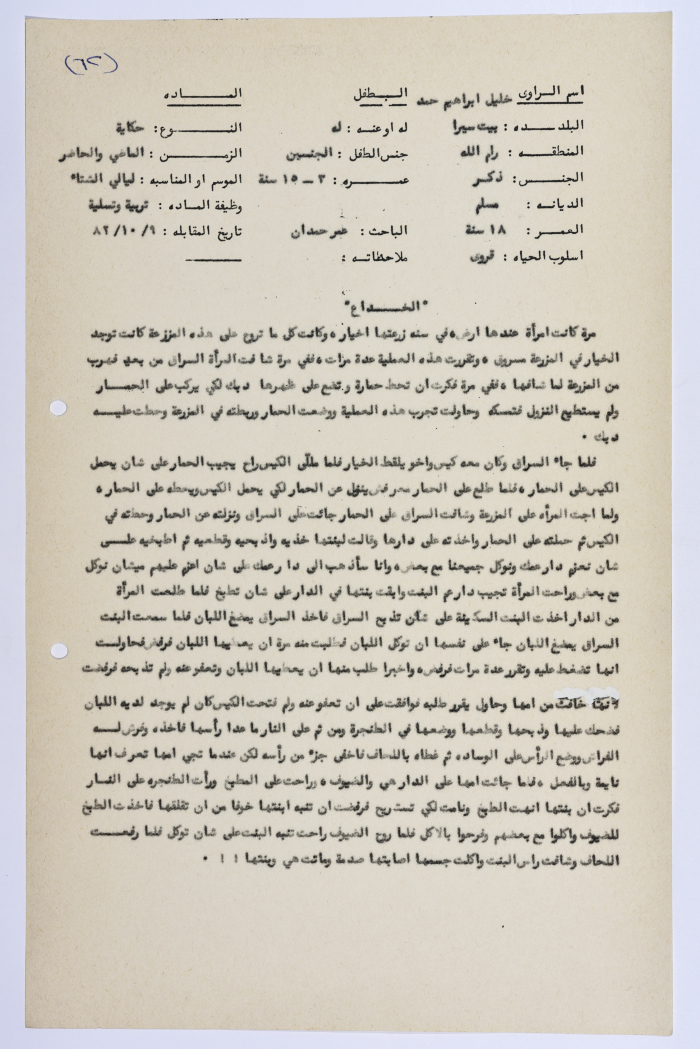 (٦٢)
اسم الراوى خليل ابراهيم حمد الطفل المـاده
البلده : بيت سيرا له او عنه : له النـوع : حكاية
المنطقـه : رام الله جنس الطفل : الجنسين الزمـن : الماضي والحاضر
الجنـس : ذكـر عمـره : ٣ ـ ١٥ سنة الموسم او المناسبه : ليالي الشتاء
الديانـه : مسلم وظيفة الماده : تربية وتسلية
العمـر : ١٨ سنة الباحث : عمر حمدان تاريخ المقابله : ٩/ ١٠/ ٨٢
اسلوب الحياه : قروى ملاحظاته : ـــــ
"الخـداع"
مرة كانت امرأة عندها ارض ، في سنه زرعتها اخيار ، وكانت كل ما تروح على هذه المزرعة كانت توجد
الخيار في المزرعة مسروق ، وتقررت هذه العملية عدة مرات ، ففي مرة شافت المرأة السراق من بعيد فهرب
من المزرعة لما شافها ، ففي مرة فكرت ان تحط حمارة وتضع على ظهرها ديك لكي يركب على الحمـار
ولم يستطيع النزول فتمسكه وحاولت تجرب هذه العملية ووضعت الحمار وربطته في المزرعة وحطت عليـه
ديك .
فلما جاء السراق وكان معه كيس واخو يلقط الخيار فلما ملّى الكيس راح يجيب الحمار على شان يحمل
الكيس على الحمار ، فلما طلع على الحمار معرفش ينزل عن الحمار لكي يحمل الكيس ويحطه على الحمار ،
ولما اجت المرأه على المزرعة وشافت السراق على الحمار جائت على السراق ونزلته عن الحمار وحطته في
الكيس ثم حملته على الحمار واخذته على دارها وقالت لبنتها خذيه واذبحيه وقطعيه ثم اطبخيه علـى
شان نعزم دار عمك ونوكل جميعنا مع بعض ، وانا سأذهب الى دار عمك على شان اعزم عليهم ميشان نوكل
مع بعض وراحت المرأة تجيب دارعم البنت وابقت بنتها في الدار على شان تطبخ فلما طلعت المرأة
من الدار اخذت البنت السكينة على شان تذبح السراق فاخذ السراق يمضغ اللبان فلما سمعت البنت
السراق يمضغ اللبان جاء على نفسها ان توكل اللبان فطلبت منه مرة ان يعطيها اللبان فرفض فحاولـت
انها تضغط عليه وتقرر عدة مرات فرفض ، واخيرا طلب منها ان يعطيها اللبان وتعفو عنه ولم تذبحه فرفضت
لأنها خافت من امها وحاول يقرر طلبه فوافقت على ان تعفو عنه ولم فتحت الكيس كان لم يوجد لديه اللبان
فضحك عليها وذبحها وقطعها ووضعها في الطنجرة ومن ثم على النار ما عدا رأسها فاخذه وفرش لــه
الفراش ووضع الرأس على الوساده ثم غطاه باللحاف فاخفى جزء من رأسه لكن عندما تجي امها تعرف انها
نايمة وبالفعل ، فلما جائت امها على الدار هي والضيوف ، وراحت على المطبخ ورأت الطنجره على النـار
فكرت ان بنتها انهت الطبخ ونامت لكي تستريح فرفضت ان تنبه ابنتها خوفا من ان تقلقها فاخذت الطبخ
للضيوف واكلوا مع بعضهم وفرحوا بالاكل فلما روح الضيوف راحت تنبه البنت على شان توكل فلما رفعـت
اللحاف وشافت راس البنت واكلت جسمها اصابتها صدمة وماتت هي وبنتها ! ! .